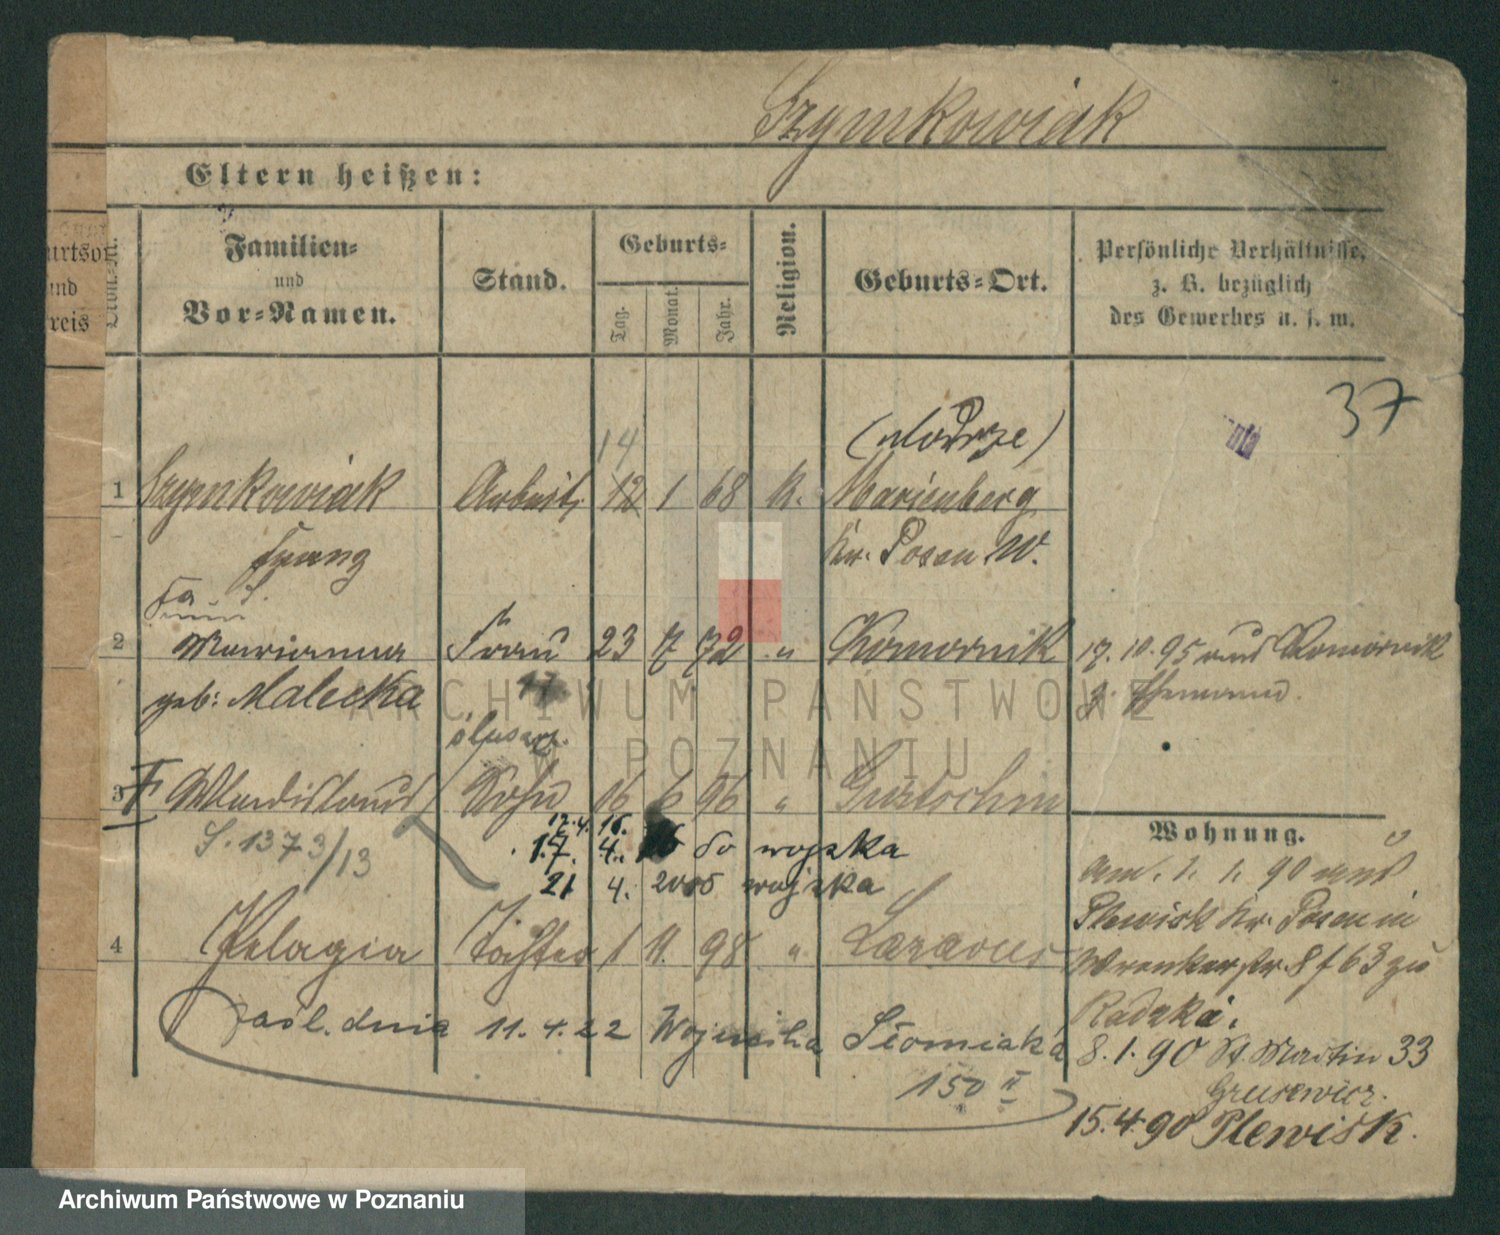 Szymkowiak
Eltern heißen:
Familien-
und
Vor-Namen.
Stand.
Geburts-
Tag.
Monat.
Jahr.
Religion.
Geburts-Ort.
Persönliche Verhältnisse,
z. B. bezüglich
des Gewerbes u. s. w.
und
reis
37
14
(Modrze)
1 Szymkowiak Arbeit. 12 1 68 K. Marienberg
Franz
Kr. Posen W.
2 Marianna Frau 23 7 72 " Komornik
17. 10. 95 aus Komornik
geb: Malecka
z. Ehemann.
ślusarz.
3 F Wladislaus Sohn 16 6 96 " Gurtschin
S. 1373/13
17. 4. 16.
17. 4. do wojska
21 4. 20 wojska
4 Pelagia Tochter 1 11. 98 " Lazarus
zaśl. dnia 11. 4. 22 Wojciecha Słomiaka
150 II
Wohnung.
am 1. 1. 90 aus
Plewisk Kr. Posen in
Wronkerstr. 8 f 63 zu
Radzka.
8. 1. 90 St. Martin 33
Grusewicz.
15. 4. 90 Plewisk.
ARCHIWUM PAŃSTWOWE
W POZNANIU
Archiwum Państwowe w Poznaniu